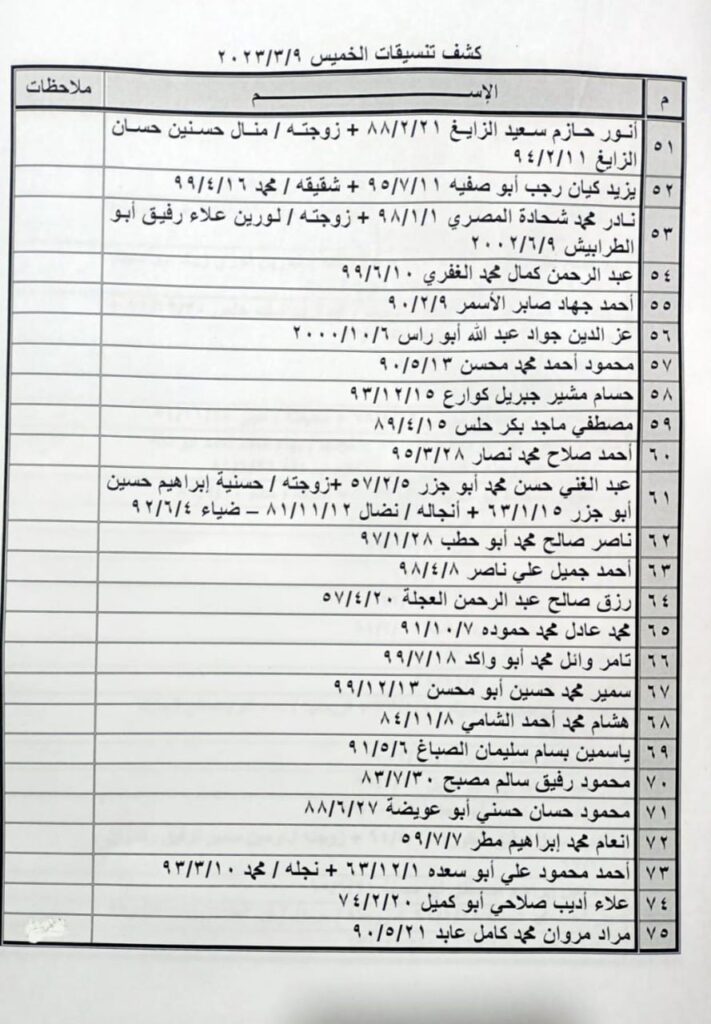 كشف تنسيقات الخميس ٢٠٢٣/٣/٩
م الإســـــم ملاحظات
٥١ أنور حازم سعيد الزايغ ٨٨/٢/٢١ + زوجته / منال حسنين حسان
الزايغ ٩٤/٢/١١
٥٢ يزيد كيان رجب أبو صفيه ٩٥/٧/١١ + شقيقه / محمد ٩٩/٤/١٦
٥٣ نادر محمد شحادة المصري ٩٨/١/١ + زوجته / لورين علاء رفيق أبو
الطرابيش ٢٠٠٢/٦/٩
٥٤ عبد الرحمن كمال محمد الغفري ٩٩/٦/١٠
٥٥ أحمد جهاد صابر الأسمر ٩٠/٢/٩
٥٦ عز الدين جواد عبد الله أبو راس ٢٠٠٠/١٠/٦
٥٧ محمود أحمد محمد محسن ٩٠/٥/١٣
٥٨ حسام مشير جبريل كوارع ٩٣/١٢/١٥
٥٩ مصطفي ماجد بكر حلس ٨٩/٤/١٥
٦٠ أحمد صلاح محمد نصار ٩٥/٣/٢٨
٦١ عبد الغني حسن محمد أبو جزر ٥٧/٢/٥ +زوجته / حسنية إبراهيم حسين
أبو جزر ٦٣/١/١٥ + أنجاله / نضال ٨١/١١/١٢ – ضياء ٩٢/٦/٤
٦٢ ناصر صالح محمد أبو حطب ٩٧/١/٢٨
٦٣ أحمد جميل علي ناصر ٩٨/٤/٨
٦٤ رزق صالح عبد الرحمن العجلة ٥٧/٤/٢٠
٦٥ محمد عادل محمد حموده ٩١/١٠/٧
٦٦ تامر وائل محمد أبو واكد ٩٩/٧/١٨
٦٧ سمير محمد حسين أبو محسن ٩٩/١٢/١٣
٦٨ هشام محمد أحمد الشامي ٨٤/١١/٨
٦٩ ياسمين بسام سليمان الصباغ ٩١/٥/٦
٧٠ محمود رفيق سالم مصبح ٨٣/٧/٣٠
٧١ محمود حسان حسني أبو عويضة ٨٨/٦/٢٧
٧٢ انعام محمد إبراهيم مطر ٥٩/٧/٧
٧٣ أحمد محمود علي أبو سعده ٦٣/١٢/١ + نجله / محمد ٩٣/٣/١٠
٧٤ علاء أديب صلاحي أبو كميل ٧٤/٢/٢٠
٧٥ مراد مروان محمد كامل عابد ٩٠/٥/٢١